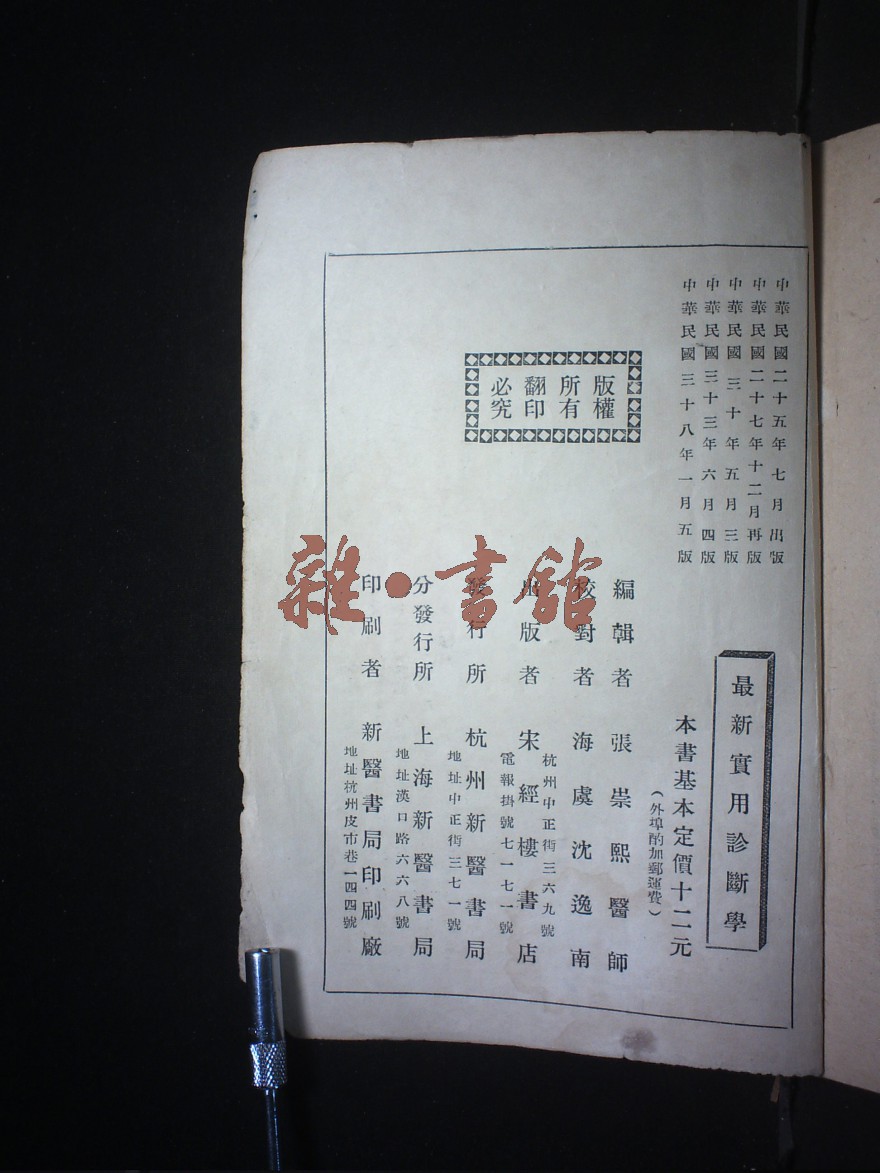 中華民國二十五年七月出版
中華民國二十七年十二月再版
中華民國三十年五月三版
中華民國三十三年六月四版
中華民國三十八年一月五版
最新實用診斷學
本書基本定價十二元
（外埠酌加郵運費）
版權
所有
翻印
必究
編輯者 張崇熙醫師
校對者 海虞沈逸南
杭州中正街三六九號
出版者 宋經樓書店
電報掛號七一七一號
發行所 杭州新醫書局
地址中正街三七一號
分發行所 上海新醫書局
地址漢口路六六八號
印刷者 新醫書局印刷廠
地址杭州皮市巷一四四號
雜·書館